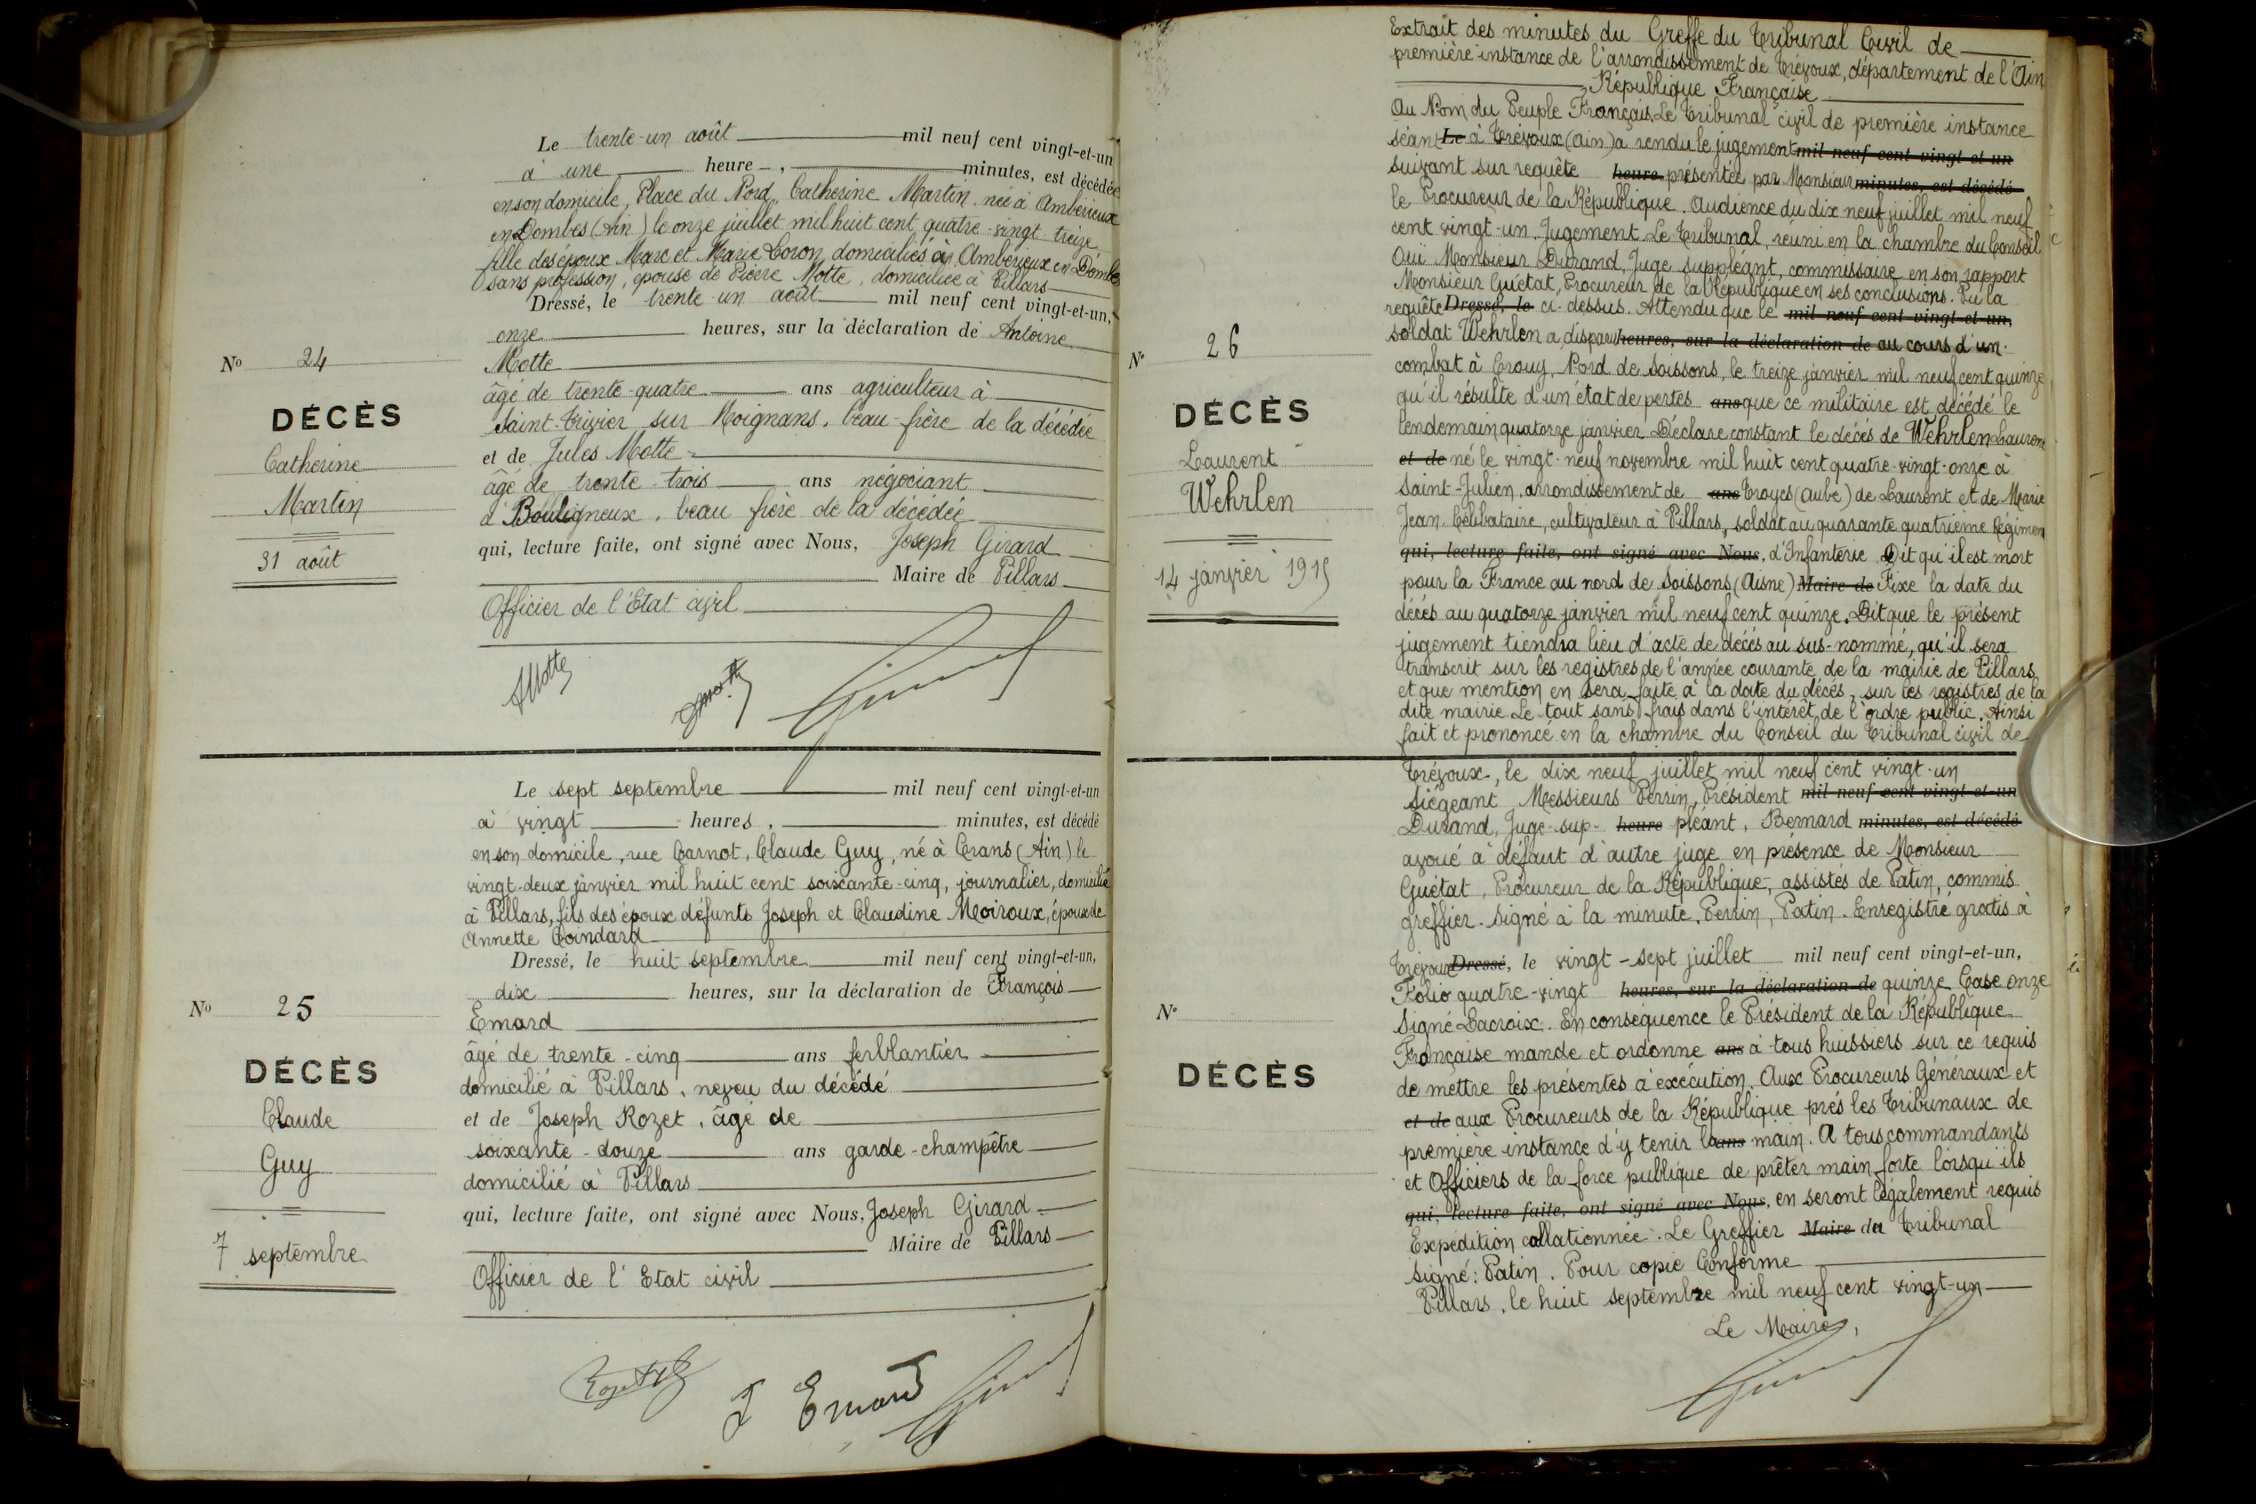 Le trente-un août mil neuf cent vingt-et-un
à une heure, minutes, est décédée
en son domicile, Place du Nord, Catherine Martin née à Ambérieux
en Dombes (Ain) le onze juillet mil huit cent quatre-vingt treize
fille des époux Marc et Marie Coron domiciliés à Ambérieux en Dombes
sans profession, épouse de Pierre Motte, domiciliée à Villars
Dressé, le trente-un août mil neuf cent vingt-et-un,
onze heures, sur la déclaration de Antoine
Motte
âgé de trente-quatre ans agriculteur à
Saint-Trivier sur Moignans, beau-frère de la décédée
et de Jules Motte
âgé de trente-trois ans négociant
à Bouligneux, beau frère de la décédée
qui, lecture faite, ont signé avec Nous, Joseph Girard
Maire de Villars
Officier de l'Etat civil
No 24
DÉCÈS
Catherine
Martin
31 août
AMotte
Girard
Le sept septembre mil neuf cent vingt-et-un
à vingt heures, minutes, est décédé
en son domicile, rue Carnot, Claude Guy, né à Crans (Ain) le
vingt-deux janvier mil huit cent soixante-cinq, journalier, domicilié
à Villars, fils des époux défunts Joseph et Claudine Moiroux, époux de
Annette Coindard
Dressé, le huit septembre mil neuf cent vingt-et-un,
dix heures, sur la déclaration de François
Emard
âgé de trente-cinq ans ferblantier
domicilié à Villars, neveu du décédé
et de Joseph Rozet, âgé de
soixante-douze ans garde-champêtre
domicilié à Villars
qui, lecture faite, ont signé avec Nous, Joseph Girard
Maire de Villars
Officier de l'Etat civil
No 25
DÉCÈS
Claude
Guy
7 septembre
Rozet
F Emard
Girard
Extrait des minutes du Greffe du Tribunal Civil de
première instance de l'arrondissement de Trévoux, département de l'Ain
République Française
Au Nom du Peuple Français Le Tribunal civil de première instance
séant Le à Trévoux (Ain) a rendu le jugement mil neuf cent vingt et un
suivant sur requête heure présentée par Monsieur minutes, est décédé
le Procureur de la République. Audience du dix neuf juillet mil neuf
cent vingt-un. Jugement Le Tribunal, réuni en la chambre du Conseil
Oui Monsieur Durand, Juge suppléant, commissaire en son rapport
Monsieur Guétat, Procureur de la République en ses conclusions. Vu la
requête Dressé, le ci-dessus. Attendu que le mil neuf cent vingt-et-un,
soldat Wehrlen a disparu heures, sur la déclaration de au cours d'un
combat à Crouy, Nord de Soissons, le treize janvier mil neuf cent quinze
qu'il résulte d'un état de pertes ans que ce militaire est décédé le
lendemain quatorze janvier Déclare constant le décès de Wehrlen Laurent
et de né le vingt-neuf novembre mil huit cent quatre-vingt-onze à
Saint-Julien, arrondissement de ans Troyes (Aube) de Laurent et de Marie
Jean. Célibataire, cultivateur à Villars, soldat au quarante quatrième Régimen
qui, lecture faite, ont signé avec Nous, d'Infanterie Dit qu'il est mort
pour la France au nord de Soissons (Aisne) Maire de Fixe la date du
décès au quatorze janvier mil neuf cent quinze. Dit que le présent
jugement tiendra lieu d'acte de décès au sus-nommé, qu'il sera
transcrit sur les registres de l'année courante de la mairie de Villars
et que mention en sera faite à la date du décès, sur les registres de la
dite mairie. Le tout sans frais dans l'intérêt de l'ordre public. Ainsi
fait et prononcé en la chambre du Conseil du Tribunal civil de
Trévoux, le dix neuf juillet mil neuf cent vingt-un
Siégeant Messieurs Perrin, Président mil neuf cent vingt-et-un
Durand, Juge-sup- heure pléant, Bernard minutes, est décédé
avoué à défaut d'autre juge en présence de Monsieur
Guétat, Procureur de la République, assistés de Patin, commis
greffier. Signé à la minute, Perrin, Patin. Enregistré gratis à
Trévoux Dressé, le vingt-sept juillet mil neuf cent vingt-et-un,
Folio quatre-vingt heures, sur la déclaration de quinze Case onze
Signé Lacroix. En conséquence le Président de la République
Française mande et ordonne ans à tous huissiers sur ce requis
de mettre les présentes à exécution. Aux Procureurs Généraux et
et de aux Procureurs de la République près les Tribunaux de
première instance d'y tenir la ans main. A tous commandants
et Officiers de la force publique de prêter main forte lorsqu'ils
qui, lecture faite, ont signé avec Nous, en seront légalement requis
Expédition collationnée. Le Greffier Maire du Tribunal
Signé: Patin. Pour copie Conforme
Villars, le huit septembre mil neuf cent vingt-un
Le Maire,
Girard
No 26
DÉCÈS
Laurent
Wehrlen
14 janvier 1915
No
DÉCÈS